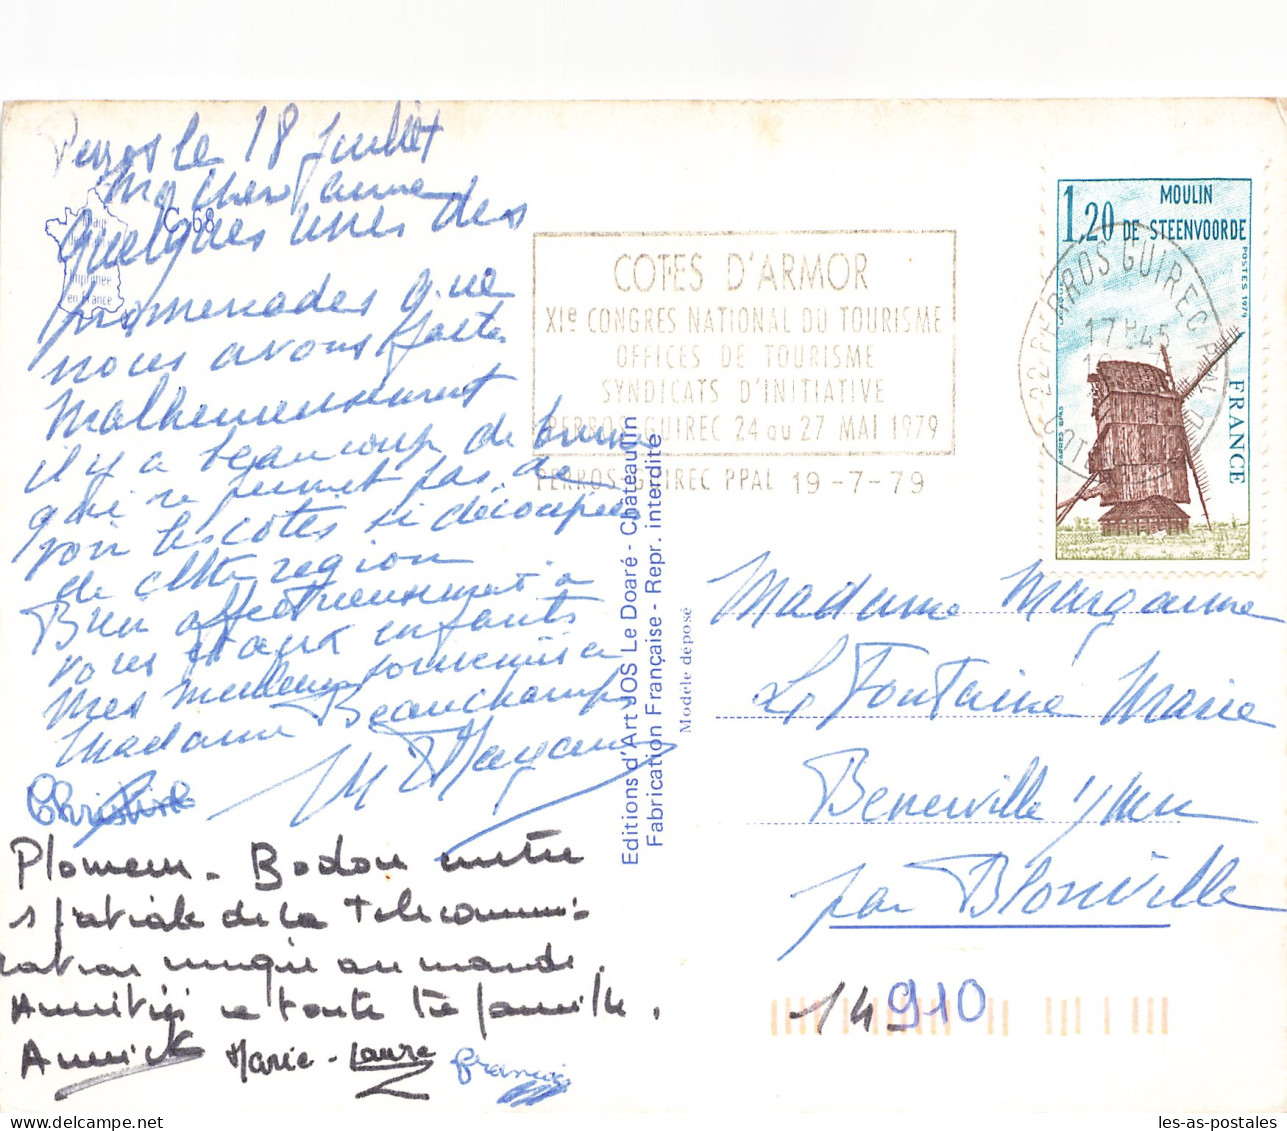 Perros le 18 Juillet
Ma chère Jeanne
Quelques unes des
promenades que
nous avons faites.
Malheureusement
il y a beaucoup de brume
qui ne permet pas de
voir les côtes si découpées
de cette région
Bien affectueusement à
vous et aux enfants
Mes meilleurs souvenirs à
Madame Beauchamp
Christine
Plomeur - Bodou
spatiale de la Télécommuni-
cation unique au monde.
Amitiés a toute ta famille.
Annick Marie-Laure Francis
C 68
imprimée
en France
Editions d'Art JOS Le Doaré - Châteaulin
Fabrication Française - Repr. interdite
Modèle déposé
COTES D'ARMOR
XIe CONGRES NATIONAL DU TOURISME
OFFICES DE TOURISME
SYNDICATS D'INITIATIVE
PERROS-GUIREC 24 au 27 MAI 1979
PERROS-GUIREC PPAL 19-7-79
1,20 MOULIN
DE STEENVOORDE
POSTES 1979
FRANCE
22 PERROS GUIREC PPAL
17H45
Madame
La Fontaine Marie
Benerville s/mer
par Blonville
14910
les-as-postales.com